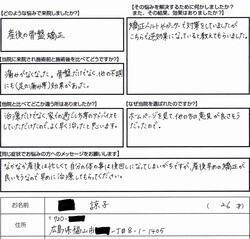 【どのような悩みで来院しましたか？】
産後の骨盤矯正
【その悩みを解決するために何かしましたか？
また、その結果、効果はありましたか？】
矯正ベルトやサポーターで対策をしていましたが
こちらも逆効果になっていると教えてもらいました。
【当院に来院され施術前と施術後を比べてどうですか？】
痛みがなくなった。骨盤だけでなく、他の不調
にも(足の痛み等)効果があった。
【当院と比べてどこか違う所はありましたか？】
治療だけでなく、家での過ごし方等のアドバイスも
していただけたので、よく早く治ったと思います。
【なぜ当院を選ばれたのですか？】
ホームページを見て他の方の意見が良さそう
だったので。
【同じ症状でお悩みの方へのメッセージをお願いします】
なかなか産後は忙しくて自分の体の事は後回しになってしまいがちですが、産後早めの矯正が
良いそうなので早めに治療してもらってください。
お名前
涼子
(26才)
住所
〒720-
広島県福山市
一丁目8-1-1405